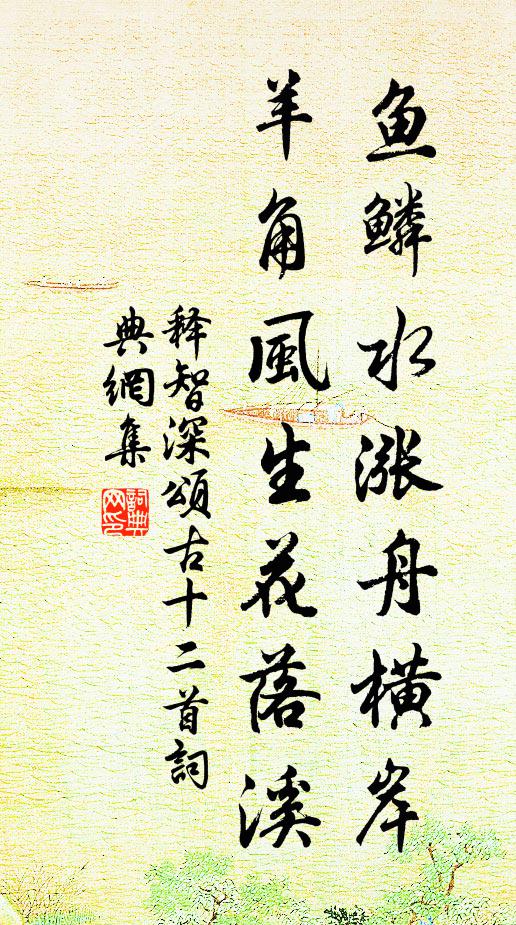 鱼鳞水涨舟横岸
羊角風生花落溪
释智深頌古十二首詞
典網集
詞典網印